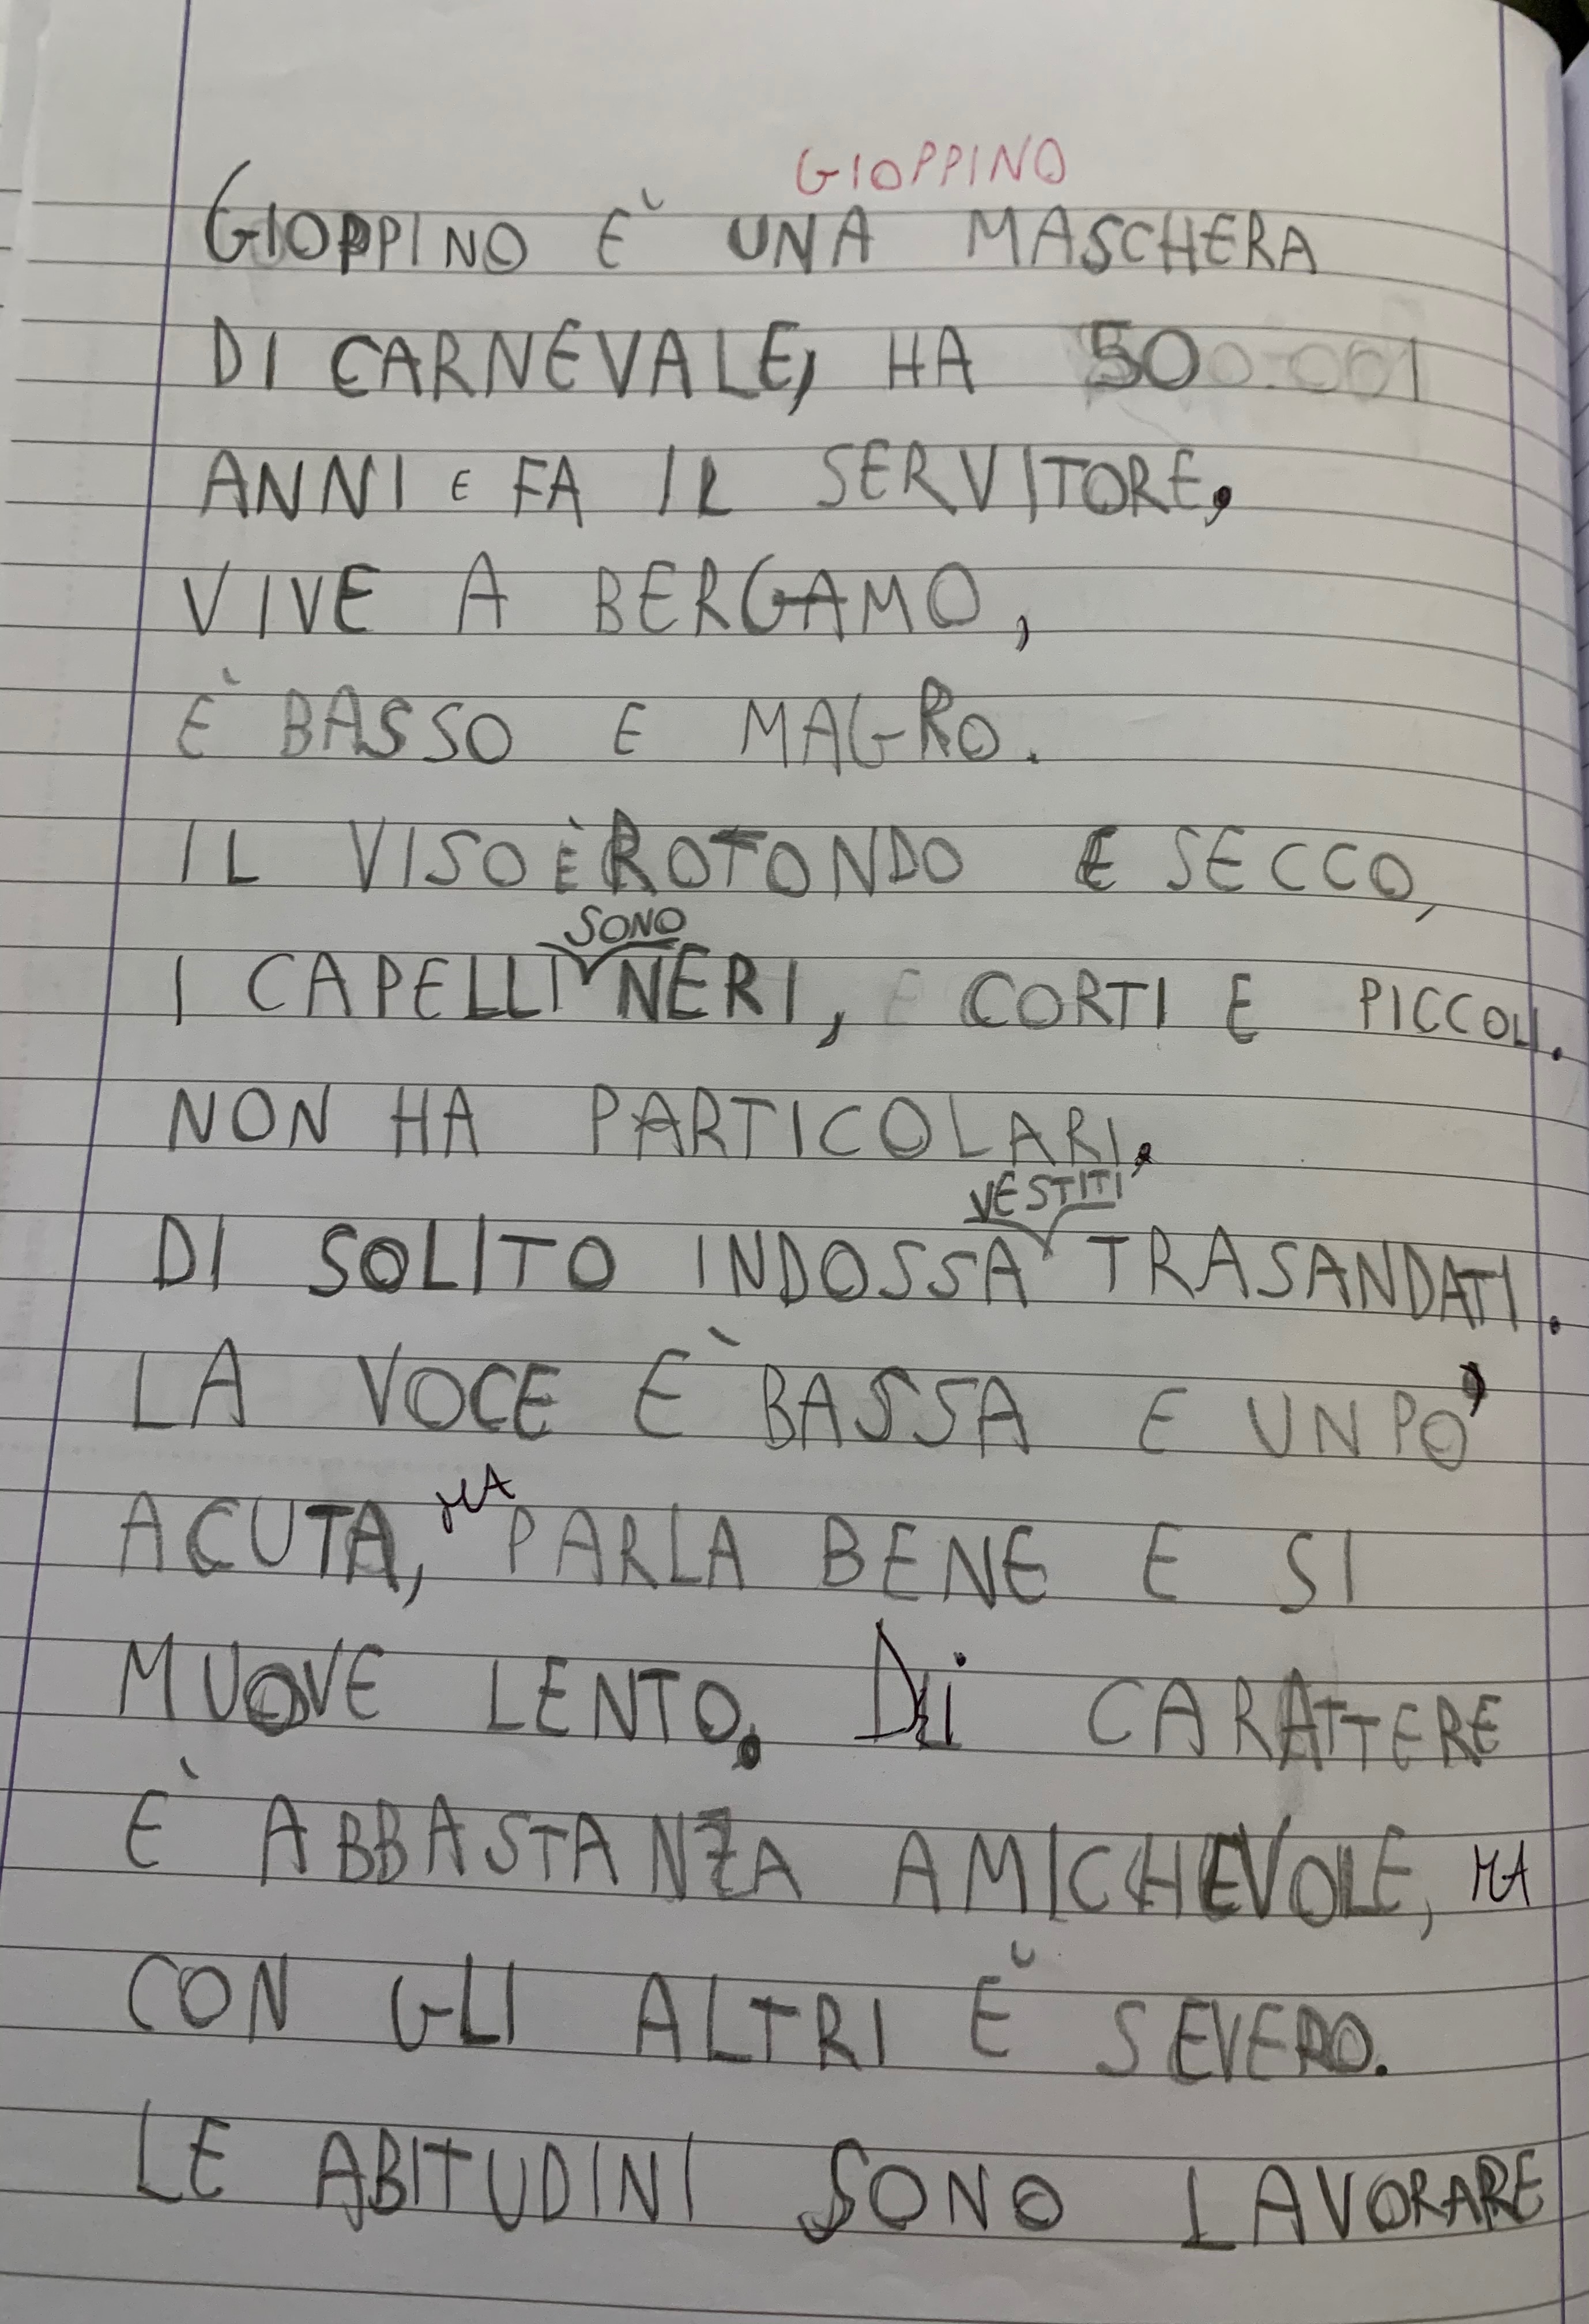 GIOPPINO
GIOPPINO È UNA MASCHERA
DI CARNEVALE, HA 50
ANNI E FA IL SERVITORE,
VIVE A BERGAMO,
È BASSO E MAGRO.
IL VISO È ROTONDO E SECCO,
SONO
I CAPELLI NERI, E CORTI E PICCOLI.
NON HA PARTICOLARI,
VESTITI
DI SOLITO INDOSSA TRASANDATI.
LA VOCE È BASSA E UN PO'
MA
ACUTA, PARLA BENE E SI
MUOVE LENTO. Di CARATTERE
È ABBASTANZA AMICHEVOLE, MA
CON GLI ALTRI È SEVERO.
LE ABITUDINI SONO LAVORARE